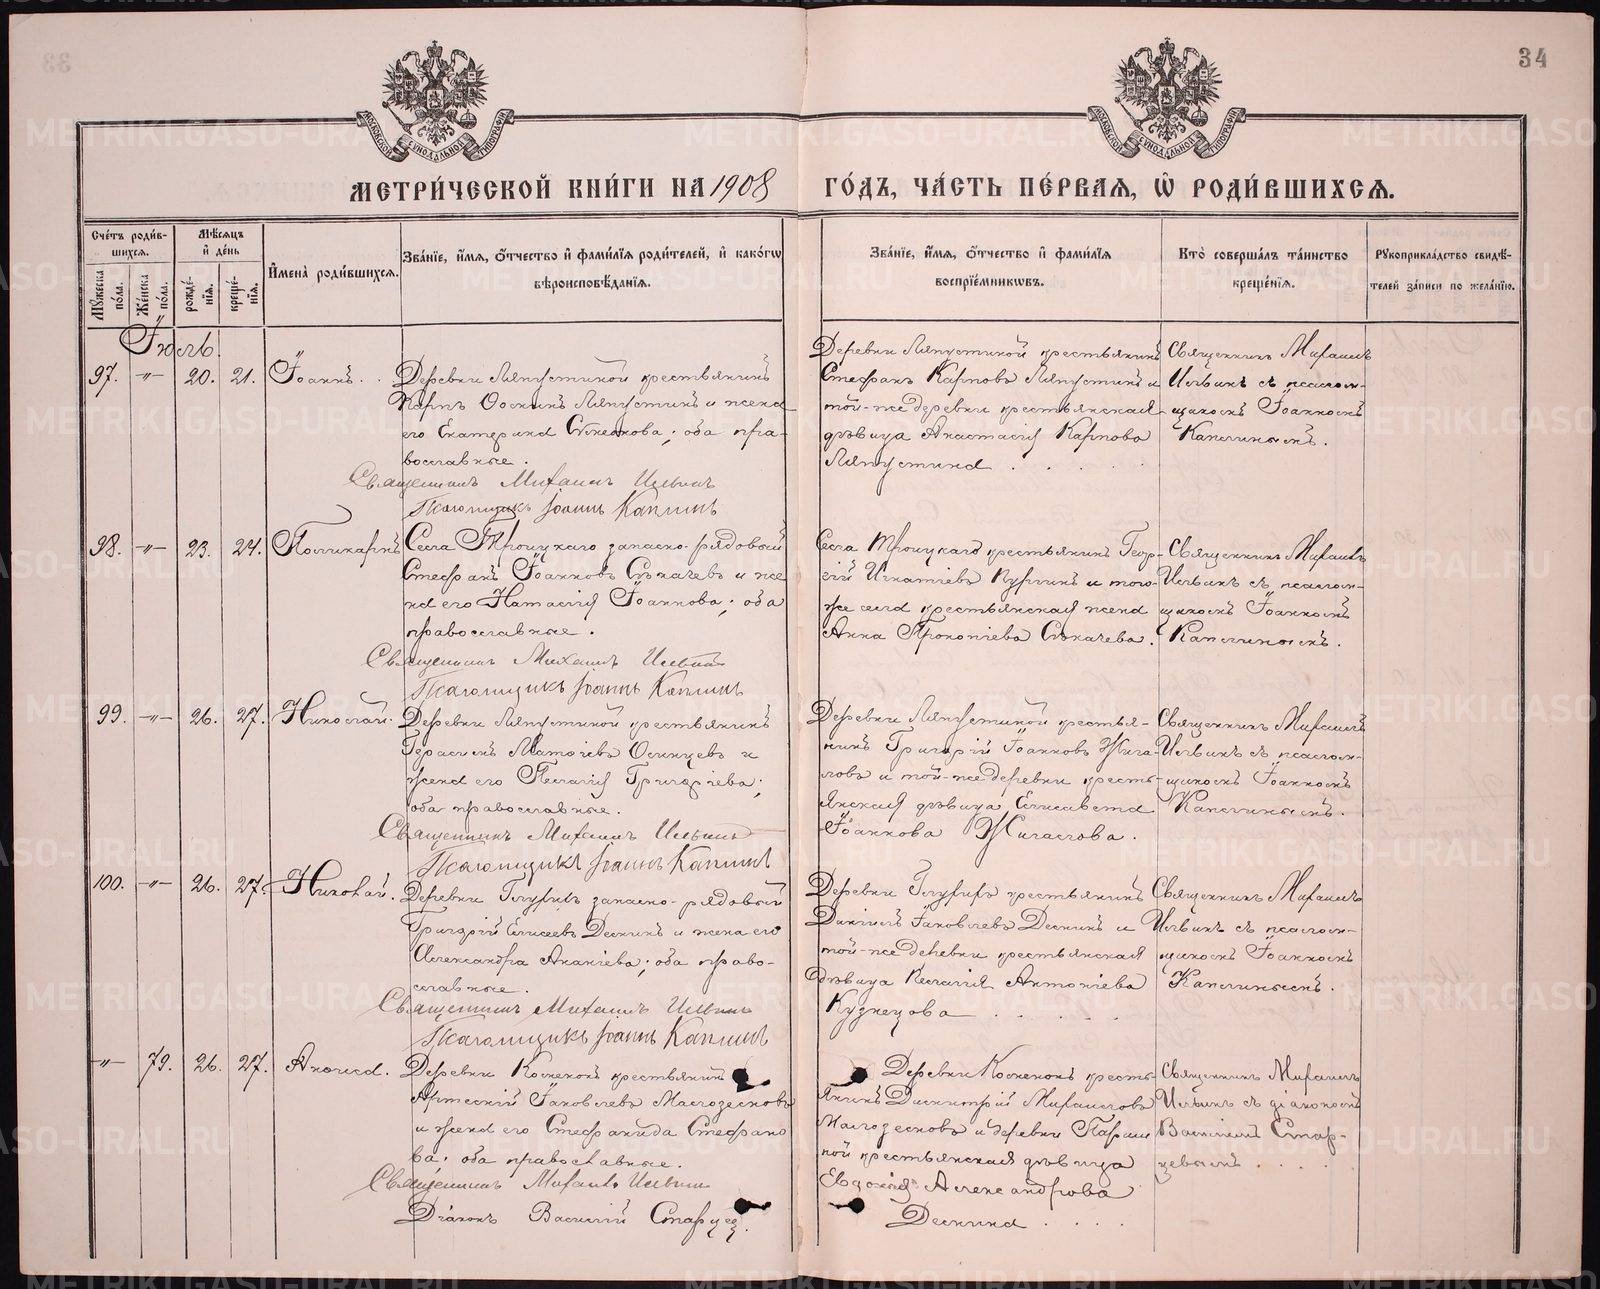 34
МОСКОВСКОЙ СѴНОДАЛЬНОЙ ТИПОГРАФІИ
МОСКОВСКОЙ СѴНОДАЛЬНОЙ ТИПОГРАФІИ
МЕТРИ́ЧЕСКОЙ КНИ́ГИ НА 1908 ГО́ДЪ, ЧА́СТЬ ПЕ́РВАЯ, Ѡ҆ РОДИ́ВШИХСѦ.
Сче́тъ роди́в-
шихсѧ.
Мꙋжеска по́ла.
Же́нска по́ла.
Мѣ́сѧцъ
и҆ де́нь
рожде́-
нїѧ.
креще́-
нїѧ.
И҆мена̀ роди́вшихсѧ.
Зва́нїе, и҆́мѧ, ѻ҆́тчество и҆ фами́лїѧ роди́телей, и҆ како́гѡ
вѣроисповѣ́данїѧ.
Зва́нїе, и҆́мѧ, ѻ҆́тчество и҆ фами́лїѧ
воспрїе́мникѡвъ.
Кто̀ соверша́лъ та́инство
креще́нїѧ.
Рꙋкоприкла́дство свидѣ́-
телей за́писи по жела́нїю.
Іюль.
97. -"- 20. 21. Іоаннъ.
Деревни Ляпустиной крестьянинъ
Карпъ Ѳоминъ Ляпустинъ и жена
его Екатерина Симеонова; оба пра-
вославные.
Священникъ Михаилъ Ильинъ
Псаломщикъ Іоаннъ Каплинъ
Деревни Ляпустиной крестьянинъ
Стефанъ Карповъ Ляпустинъ и
той-же деревни крестьянская
дѣвица Анастасія Карпова
Ляпустина
Священникъ Михаилъ
Ильинъ съ псалом-
щикомъ Іоанномъ
Каплинымъ.
98. -"- 23. 24. Поликарпъ
Села Троицкаго запасно-рядовый
Стефанъ Іоанновъ Сѣкачевъ и же
на его Наталія Іоаннова; оба
православные.
Священникъ Михаилъ Ильинъ
Псаломщикъ Іоаннъ Каплинъ
Села Троицкаго крестьянинъ Геор-
гій Игнатіевъ и того-
же села крестьянская жена
Анна Прокопіева Сѣкачева.
Священникъ Михаилъ
Ильинъ съ псалом-
щикомъ Іоанномъ
Каплинымъ.
99. -"- 26. 27. Николай.
Деревни Ляпустиной крестьянинъ
Герасимъ Матѳіевъ Осинцевъ и
жена его Пелагія Григоріева;
оба православные.
Священникъ Михаилъ Ильинъ
Псаломщикъ Іоаннъ Каплинъ
Деревни Ляпустиной крестья-
нинъ Григорій Іоанновъ Жига-
ловъ и той-же деревни кресть-
янская дѣвица Елисавета
Іоаннова Жигалова.
Священникъ Михаилъ
Ильинъ съ псалом-
щикомъ Іоанномъ
Каплинымъ.
100. -"- 26. 27. Николай.
Деревни запасно-рядовый
Григорій Елисеевъ Деминъ и жена его
Александра Ананіева; оба право-
славные.
Священникъ Михаилъ Ильинъ
Псаломщикъ Іоаннъ Каплинъ
Деревни крестьянинъ
Даніилъ Іаковлевъ Деминъ и
той-же деревни крестьянская
дѣвица Пелагія Антоніева
Кузнецова
Священникъ Михаилъ
Ильинъ съ псалом-
щикомъ Іоанномъ
Каплинымъ.
-"- 79. 26. 27. Анѳиса.
Деревни крестьянинъ
Артемій Іаковлевъ Маслоземовъ
и жена его Стефанида Стефано
ва; оба православные.
Священникъ Михаилъ Ильинъ
Діаконъ Василій Старцевъ.
Деревни кресть-
янинъ Димитрій Михаиловъ
Маслоземовъ и деревни
крестьянская дѣвица
Евдокія Александрова
Демина
Священникъ Михаилъ
Ильинъ съ діакономъ
Василіемъ Стар-
цевымъ